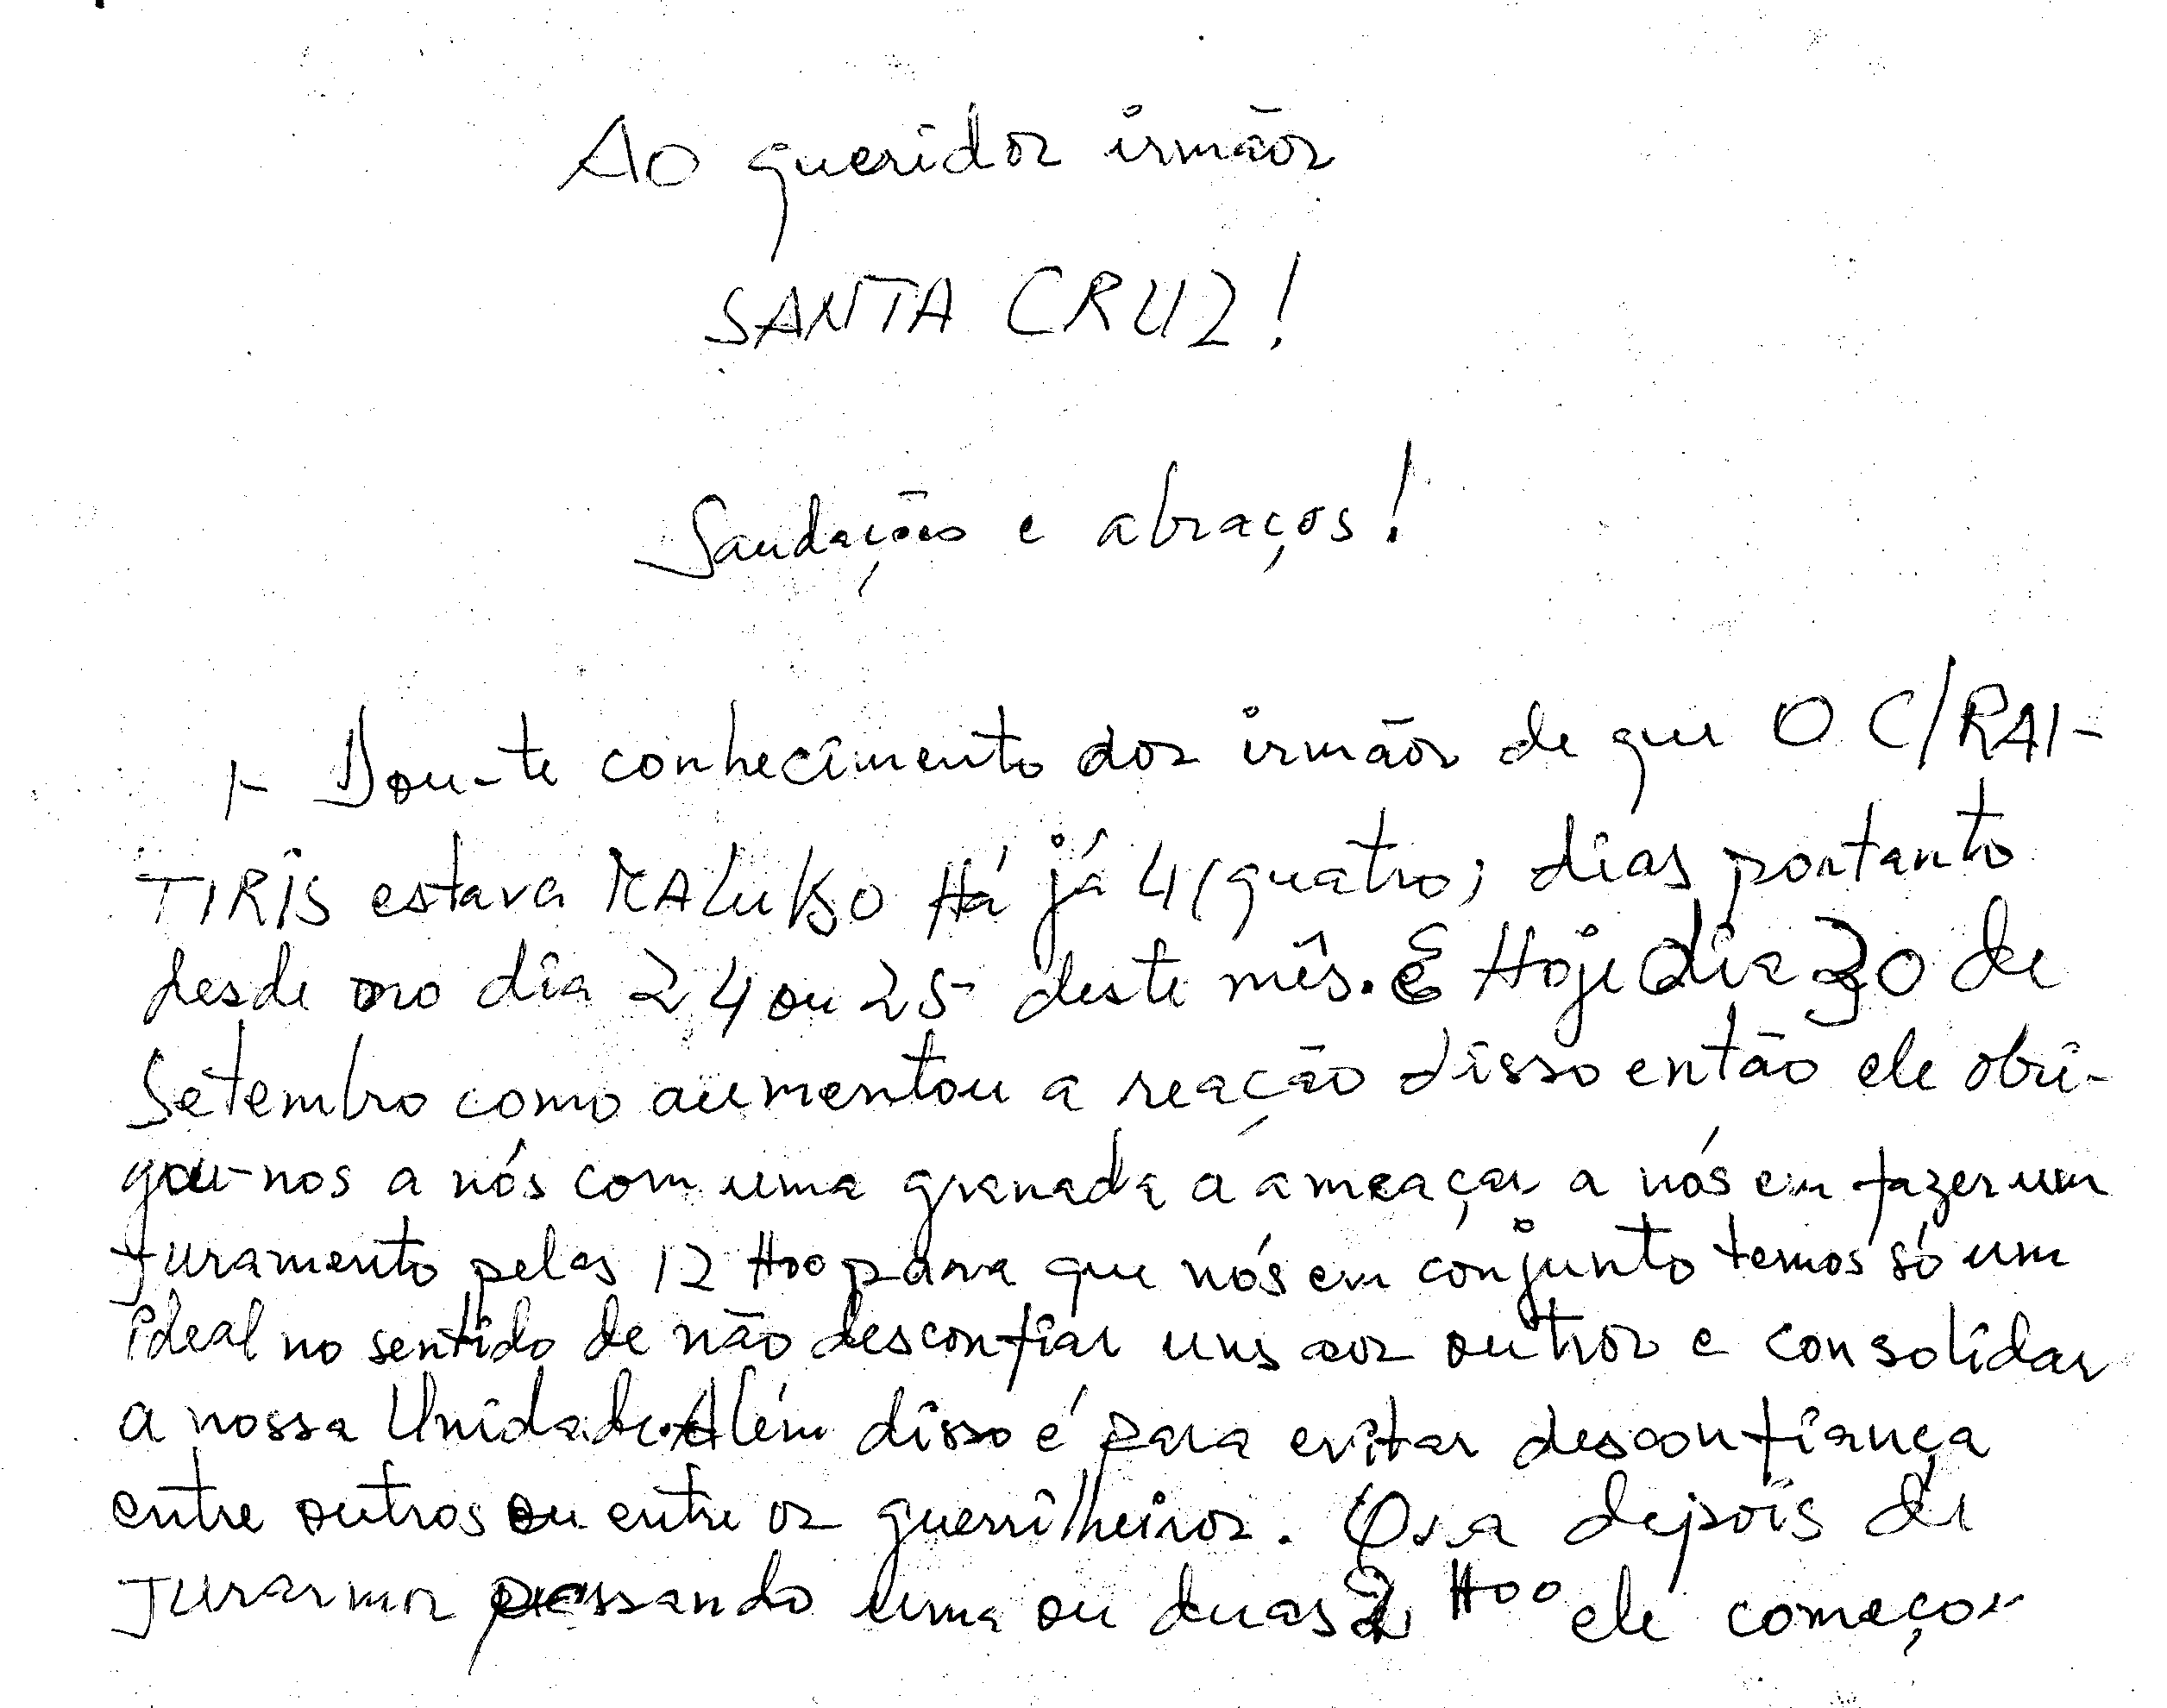 Ao queridos irmãos
SANTA CRUZ!
Saudações e abraços!
1- Dou-te conhecimento dos irmãos de que O C/RAI-
TIRIS estava MALUKO Há já 4 (quatro) dias portanto
desde no dia 24 ou 25 deste mês. E Hoje dia 30 de
Setembro como aumentou a reação disso então ele obri-
gou-nos a nós com uma granada a ameaçar a nós em fazer um
Juramento pelas 12 H00 para que nós em conjunto temos só um
ideal no sentido de não desconfiar uns aos outros e consolidar
a nossa Unidade. Além disso é para evitar desconfiança
entre outros ou entre os guerrilheiros. Ora depois de
Jurarmos passando uma ou duas 2 H00 ele começou